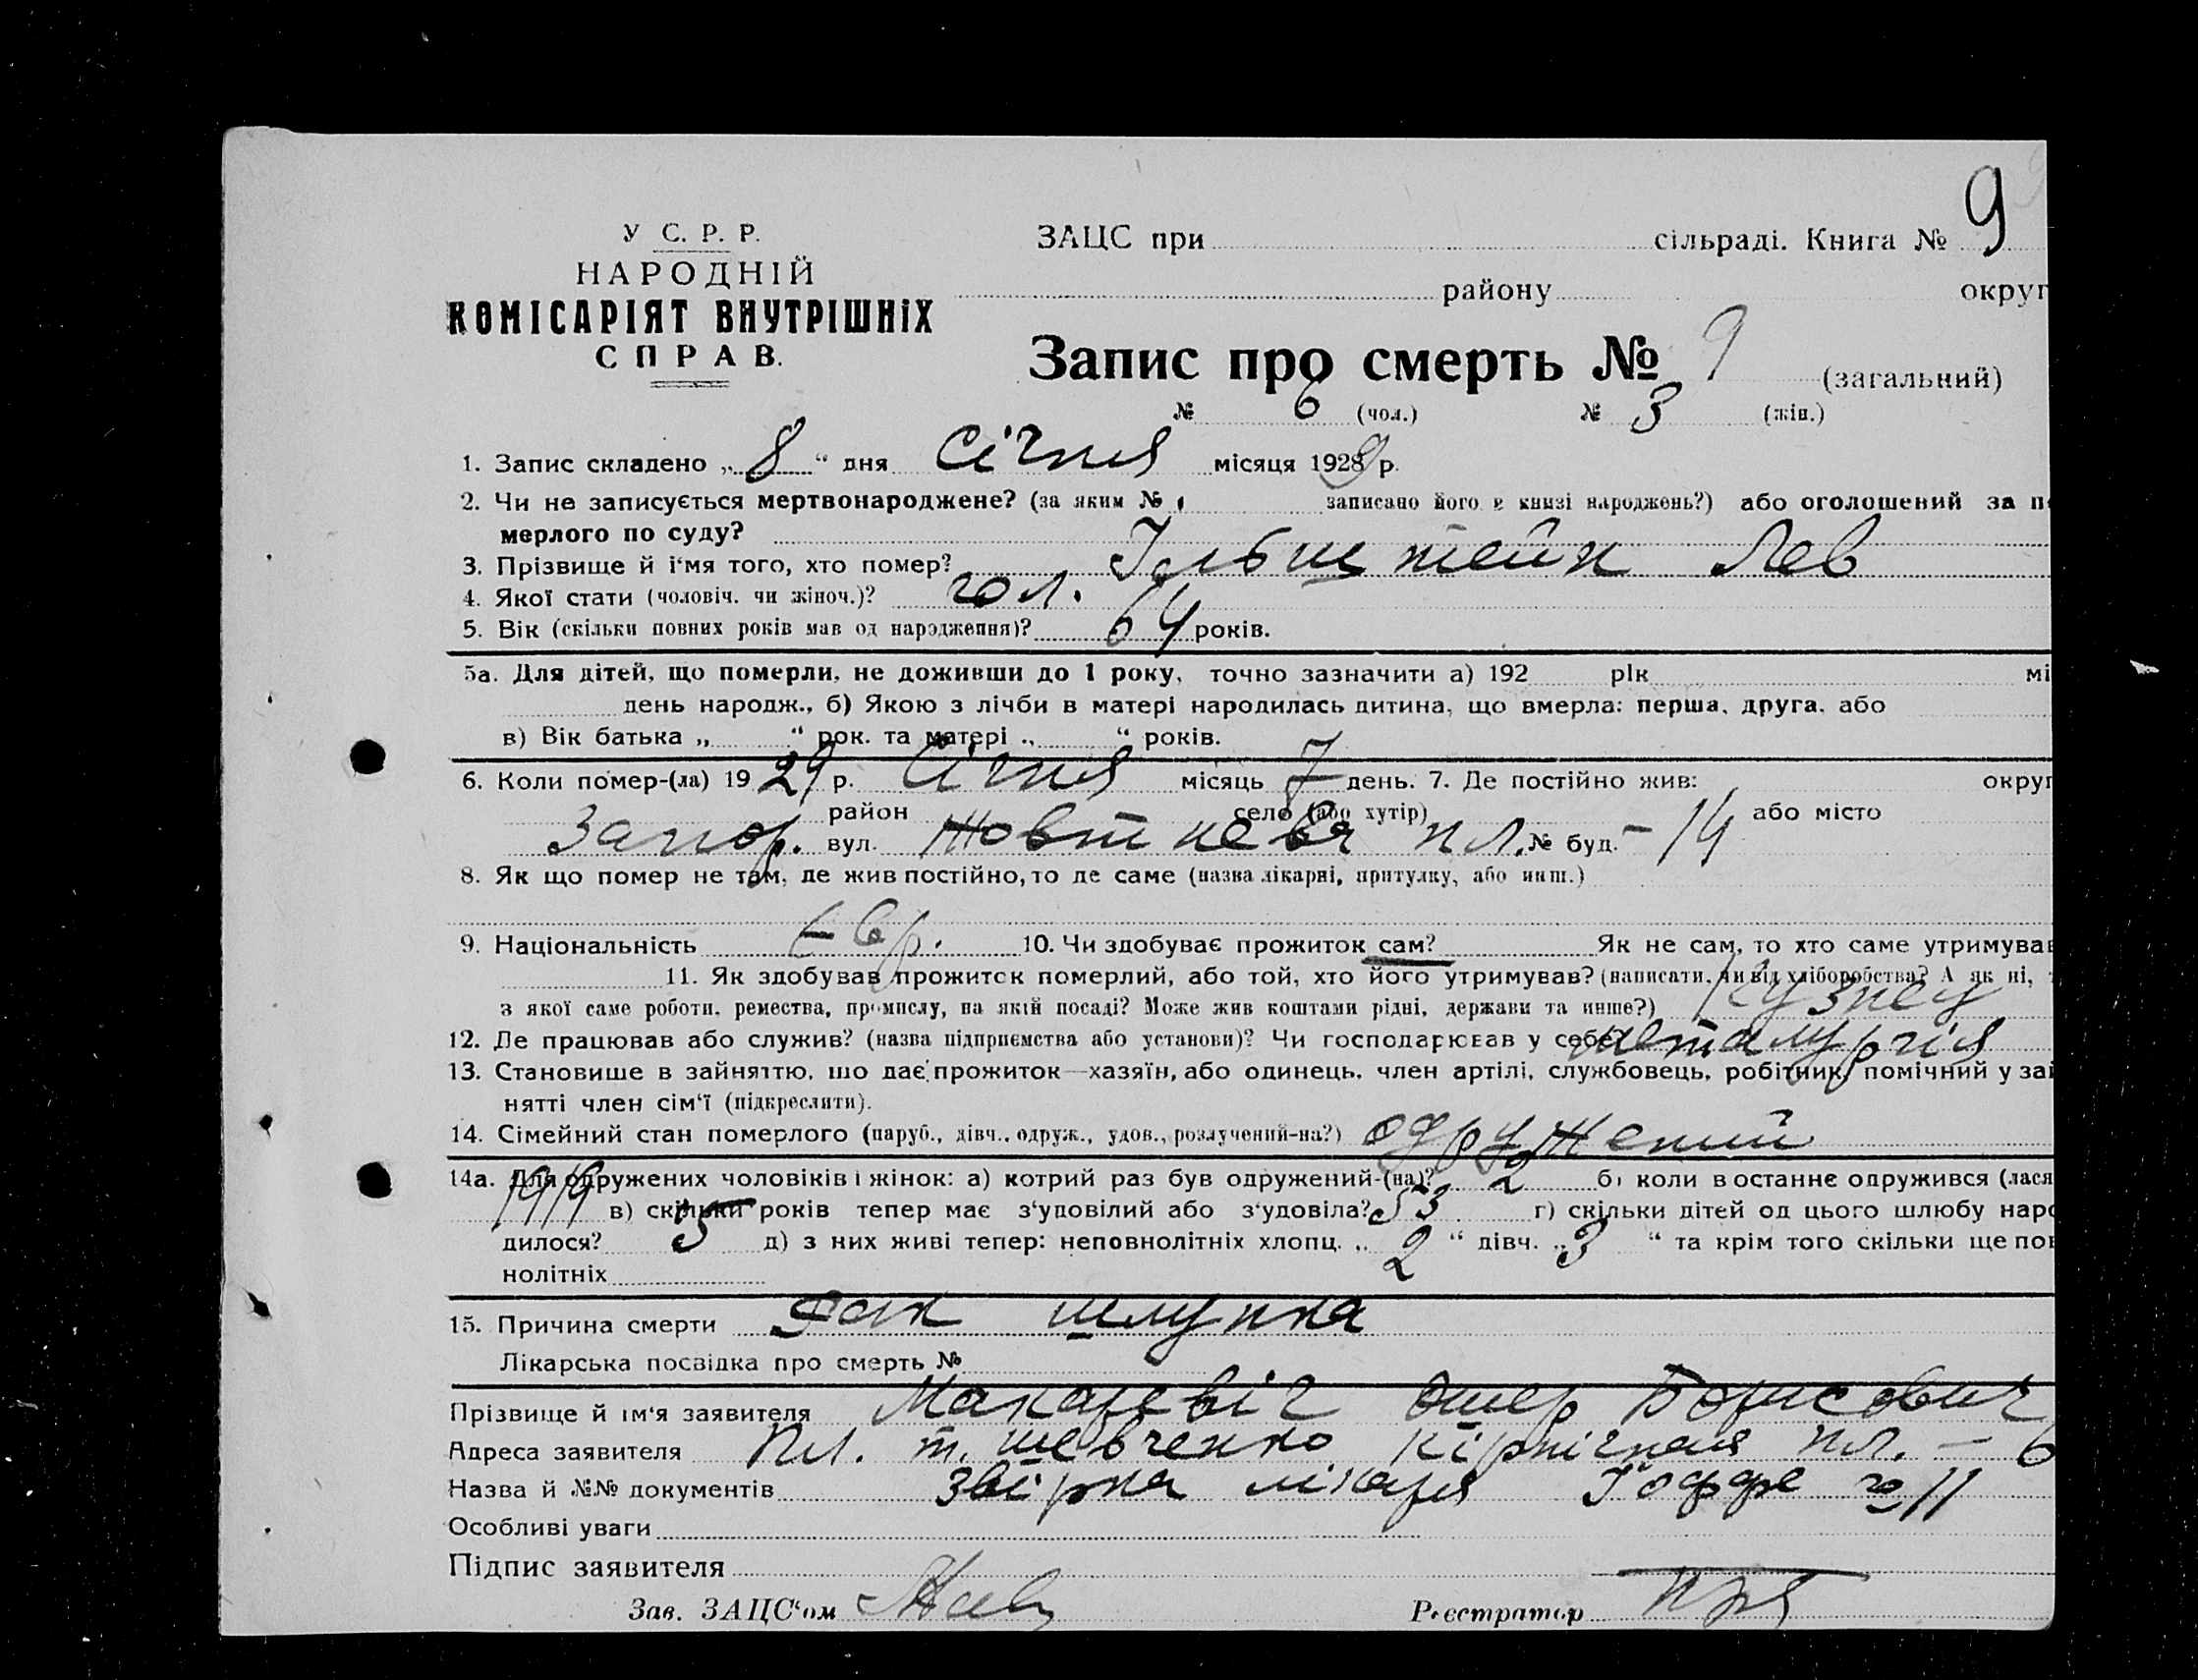 9
У С. Р. Р.
НАРОДНІЙ
КОМІСАРІЯТ ВНУТРІШНІХ
СПРАВ.
ЗАЦС при сільраді. Книга № 9
району округ
Запис про смерть № 9 (загальний)
№ 6 (чол.) № 3 (жін.)
1. Запис складено „ 8 “ дня Січня місяця 1929 р.
2. Чи не записується мертвонароджене? (за яким № записано його в книзі народжень?) або оголошений за по
мерлого по суду?
3. Прізвище й ім‘я того, хто помер? Гольдштейн Лев
4. Якої стати (чоловіч. чи жіноч.)? чол.
5. Вік (скільки повних років мав од народження)? 64 років.
5а. Для дітей, що померли, не доживши до 1 року, точно зазначити а) 192 рік мі
день народж., б) Якою з лічби в матері народилась дитина, що вмерла: перша, друга, або
в) Вік батька „ “ рок. та матері „ “ років.
6. Коли помер-(ла) 19 29 р. Січня місяць 7 день. 7. Де постійно жив: округ
район село (або хутір) або місто
Запор. вул. Жовтнева пл. № буд. – 14
8. Як що помер не там, де жив постійно, то де саме (назва лікарні, притулку, або инш.)
9. Національність Евр. 10. Чи здобуває прожиток сам? Як не сам, то хто саме утримував
11. Як здобував прожиток померлий, або той, хто його утримував? (написати, чи від хліборобства? А як ні, т
з якої саме роботи, ремества, промислу, на якій посаді? Може жив коштами рідні, держави та инше?) Кузнец
12. Де працював або служив? (назва підприємства або установи)? Чи господарював у себе? металургія
13. Становище в зайняттю, що дає прожиток—хазяїн, або одинець, член артілі, службовець, робітник, помічний у зай
нятті член сім‘ї (підкреслити).
14. Сімейний стан померлого (паруб., дівч., одруж., удов., розлучений-на?) одружений
14а. Для одружених чоловіків і жінок: а) котрий раз був одружений-(на)? 2 б) коли востаннє одружився (лася
1919 в) скільки років тепер має з‘уповілий або з‘удовіла? 53 г) скільки дітей од цього шлюбу наро
дилося? 5 д) з них живі тепер: неповнолітніх хлопц. „ 2 “ дівч. „ 3 “ та крім того скільки ще пов
нолітніх
15. Причина смерти Рак шлунка
Лікарська посвідка про смерть №
Прізвище й ім‘я заявителя Макаревіч Ошер Борисович
Адреса заявителя пл. т. Шевченко Кірпічная пл. – 6
Назва й №№ документів звірка лікаря Гоффе № 11
Особливі уваги
Підпис заявителя
Зав. ЗАЦС‘ом Реєстратор